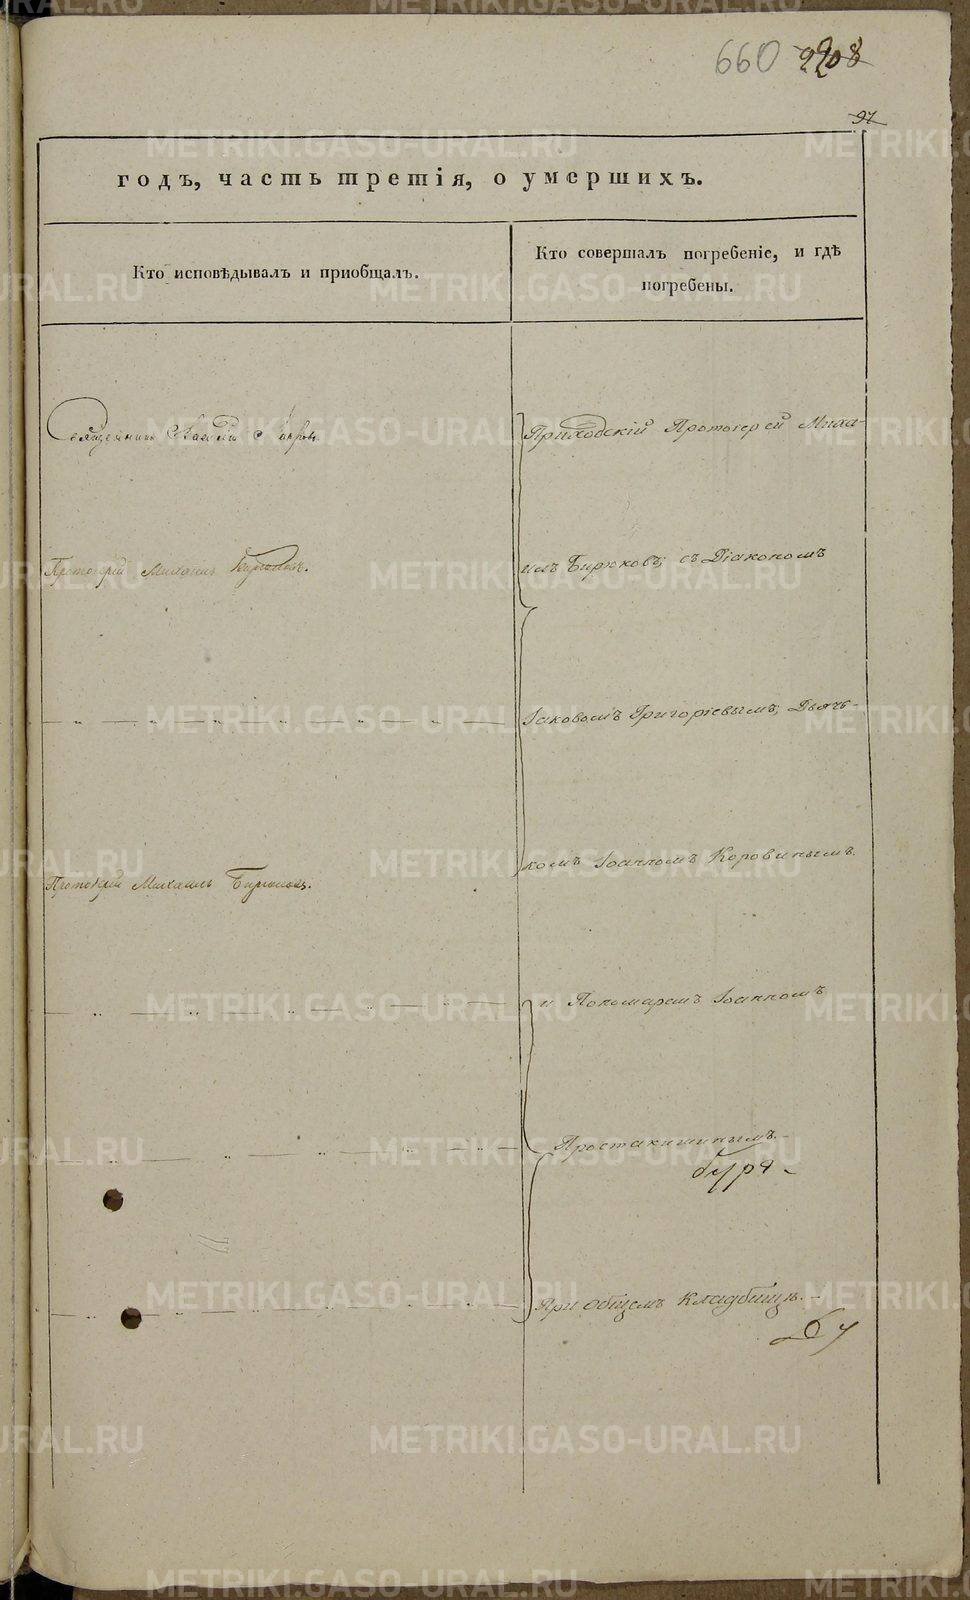 660 2208
97
годъ, часть третія, о умершихъ.
Кто исповѣдывалъ и приобщалъ.
Кто совершалъ погребеніе, и гдѣ
погребены.
Священникъ
Приходскій Протоіерей Миха-
Протоіерей Михаилъ Бирюковъ.
илъ Бирюковъ; съ Діакономъ
Іаковомъ Григоріевымъ; Дьяч-
комъ Іоанномъ Коровинымъ
Протоіерей Михаилъ Бирюковъ.
и Пономаремъ Іоанномъ
Простакишинымъ.
При общемъ кладбищѣ.
METRIKI.GASO-URAL.RU